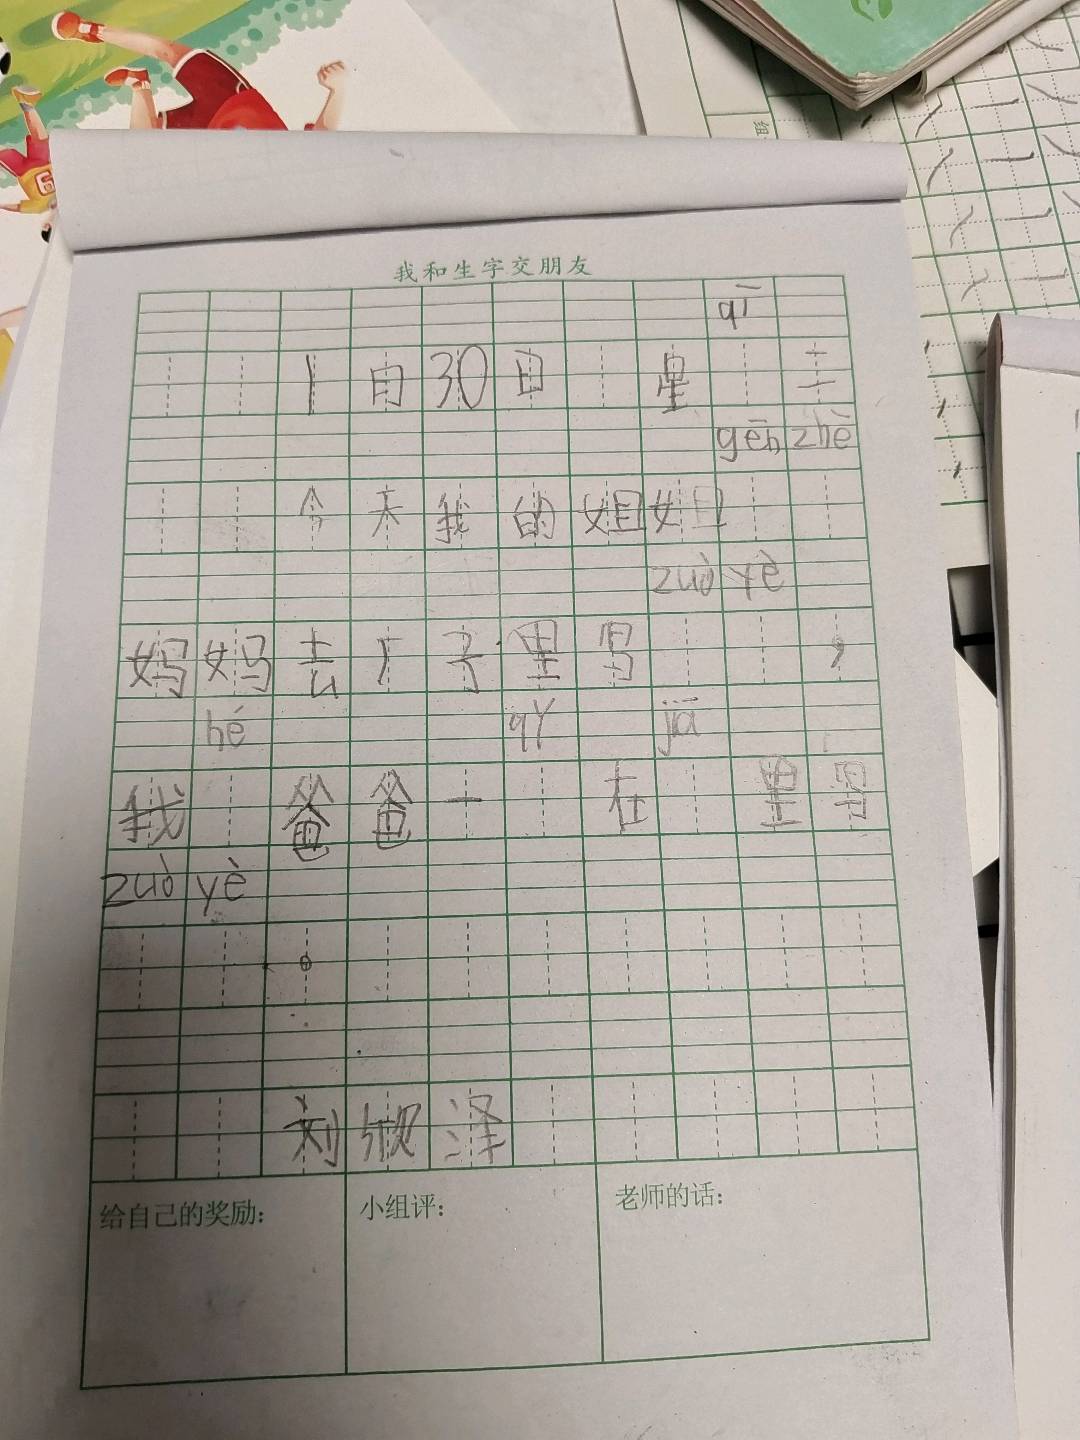 我和生字交朋友
qī
1月30日 星 二
gēn zhè
今天我的姐姐
zuò yè
妈妈去厂子里写 ，
hé qǐ jiā
我 爸爸一 在 里写
zuò yè
。
刘欣泽
给自己的奖励： 小组评： 老师的话：